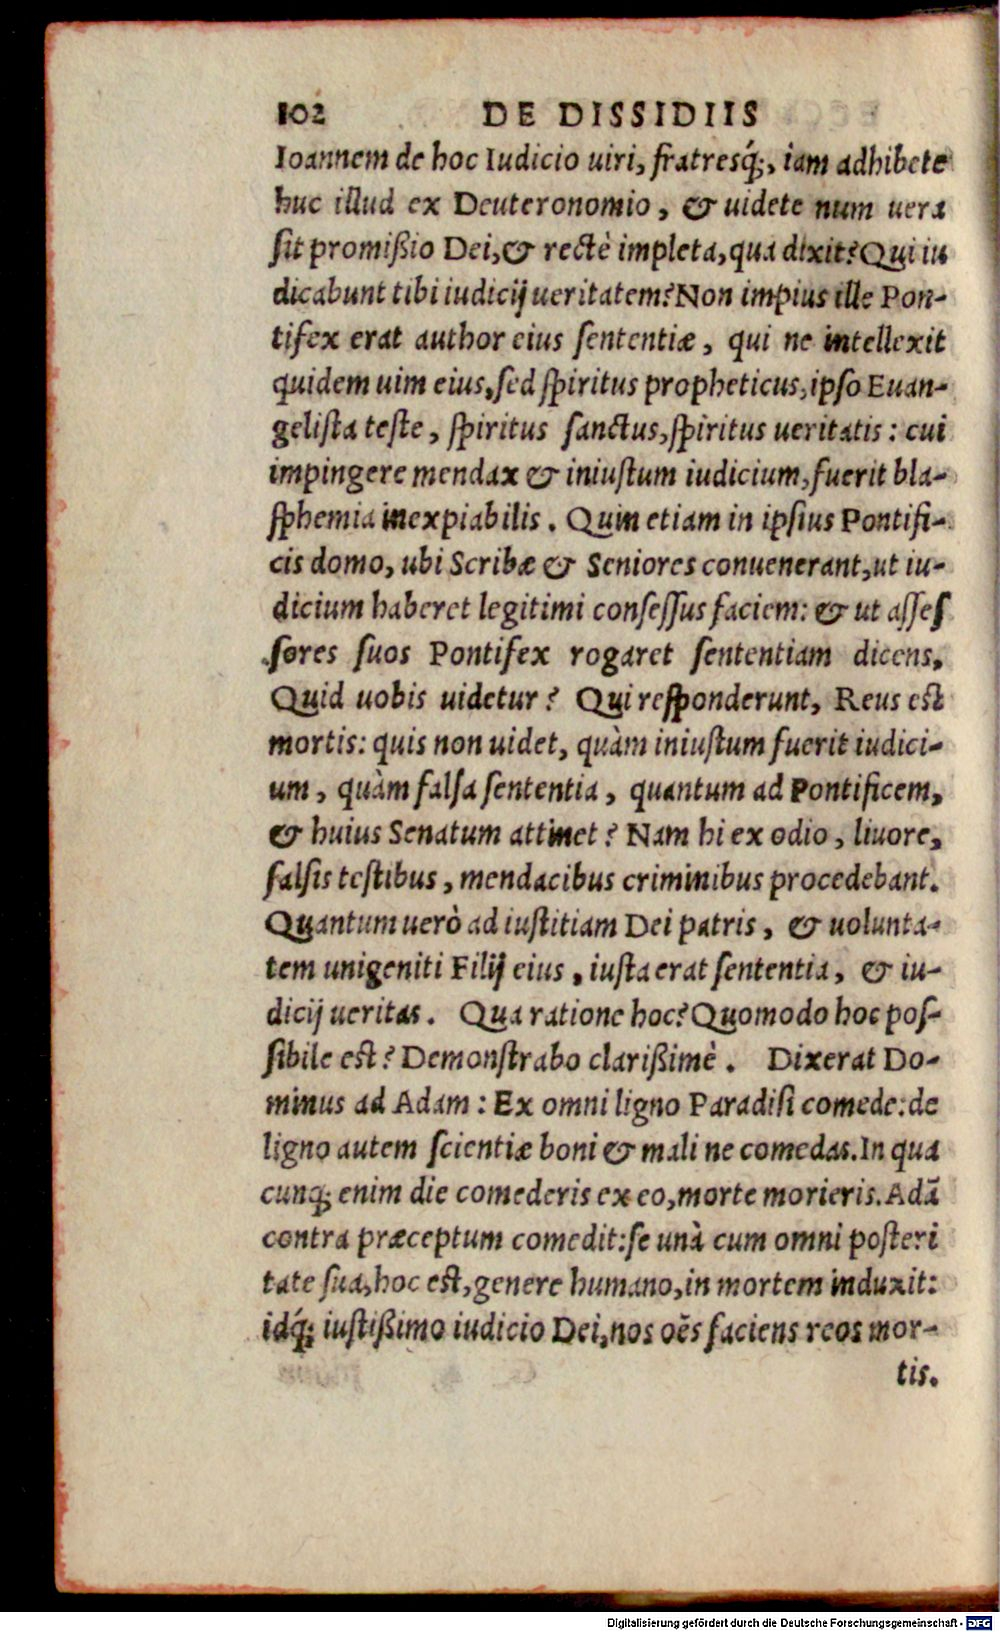 102 DE DISSIDIIS
Ioannem de hoc Iudicio uiri, fratresq́;, iam adhibete
huc illud ex Deuteronomio, & uidete num uera
sit promißio Dei, & rectè impleta, qua dixit? Qui iu
dicabunt tibi iudicij ueritatem? Non impius ille Pon-
tifex erat author eius sententiæ, qui ne intellexit
quidem uim eius, sed spiritus propheticus, ipso Euan-
gelista teste, spiritus sanctus, spiritus ueritatis: cui
impingere mendax & iniustum iudicium, fuerit bla-
sphemia inexpiabilis. Quin etiam in ipsius Pontifi-
cis domo, ubi Scribæ & Seniores conuenerant, ut iu-
dicium haberet legitimi consessus faciem: & ut asses
sores suos Pontifex rogaret sententiam dicens,
Quid uobis uidetur? Qui responderunt, Reus est
mortis: quis non uidet, quàm iniustum fuerit iudici-
um, quàm falsa sententia, quantum ad Pontificem,
& huius Senatum attinet? Nam hi ex odio, liuore,
falsis testibus, mendacibus criminibus procedebant.
Quantum uerò ad iustitiam Dei patris, & uolunta-
tem unigeniti Filij eius, iusta erat sententia, & iu-
dicij ueritas. Qua ratione hoc? Quomodo hoc pos-
sibile est? Demonstrabo clarißimè. Dixerat Do-
minus ad Adam: Ex omni ligno Paradisi comede: de
ligno autem scientiæ boni & mali ne comedas. In qua
cunq; enim die comederis ex eo, morte morieris. Adã
contra præceptum comedit: se unà cum omni posteri
tate sua, hoc est, genere humano, in mortem induxit:
idq́; iustißimo iudicio Dei, nos oẽs faciens reos mor-
tis.
Digitalisierung gefördert durch die Deutsche Forschungsgemeinschaft - DFG